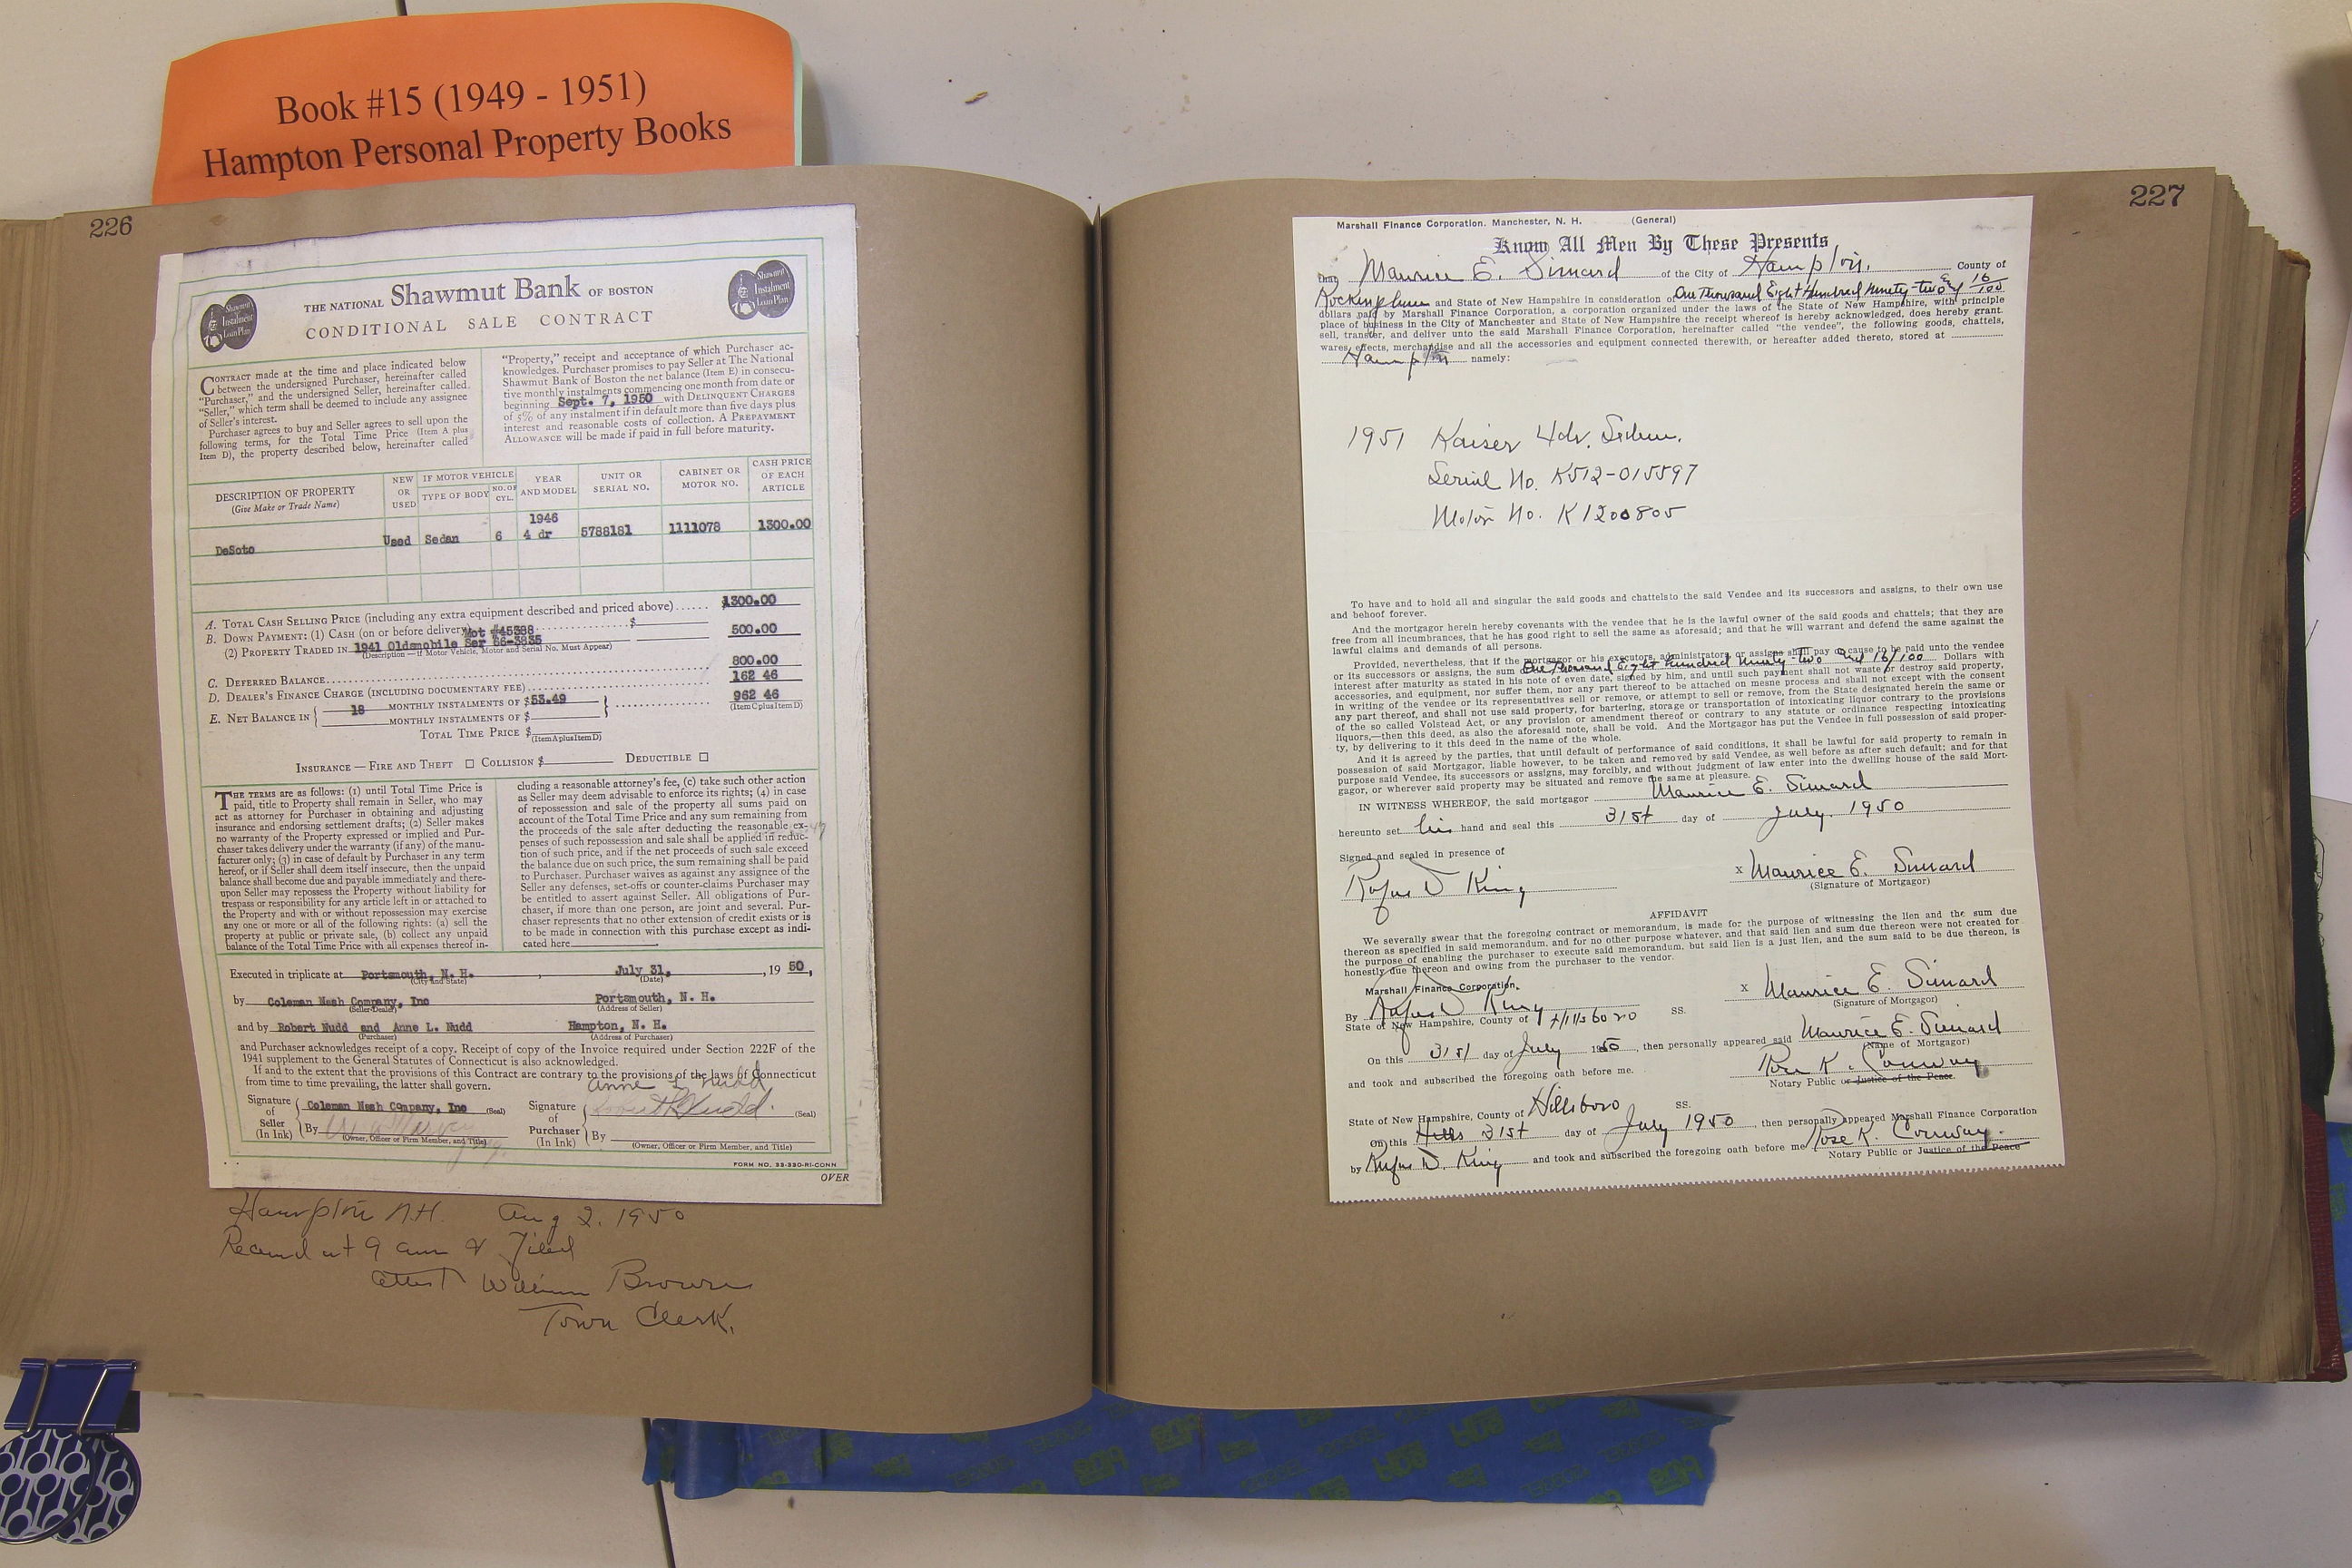 Book #15 (1949 - 1951)
Hampton Personal Property Books
226
Shawmut Instalment Loan Plan
THE NATIONAL Shawmut Bank OF BOSTON
CONDITIONAL SALE CONTRACT
Shawmut Instalment Loan Plan
CONTRACT made at the time and place indicated below
between the undersigned Purchaser, hereinafter called
"Purchaser," and the undersigned Seller, hereinafter called
"Seller," which term shall be deemed to include any assignee
of Seller's interest.
Purchaser agrees to buy and Seller agrees to sell upon the
following terms, for the Total Time Price (Item A plus
Item D), the property described below, hereinafter called
"Property," receipt and acceptance of which Purchaser ac-
knowledges. Purchaser promises to pay Seller at The National
Shawmut Bank of Boston the net balance (Item E) in consecu-
tive monthly instalments commencing one month from date or
beginning Sept. 7, 1950 with DELINQUENT CHARGES
of 5% of any instalment if in default more than five days plus
interest and reasonable costs of collection. A PREPAYMENT
ALLOWANCE will be made if paid in full before maturity.
DESCRIPTION OF PROPERTY
(Give Make or Trade Name)
NEW OR USED
IF MOTOR VEHICLE
TYPE OF BODY
NO. OF CYL.
YEAR AND MODEL
UNIT OR SERIAL NO.
CABINET OR MOTOR NO.
CASH PRICE OF EACH ARTICLE
DeSoto Used Sedan 6 1946 4 dr 5788181 1111078 1300.00
A. TOTAL CASH SELLING PRICE (including any extra equipment described and priced above)...... $1300.00
B. DOWN PAYMENT: (1) CASH (on or before delivery) $
Mot #45388
(2) PROPERTY TRADED IN 1941 Oldsmobile Ser 66-3835 500.00
(Description—if Motor Vehicle, Motor and Serial No. Must Appear)
C. DEFERRED BALANCE 800.00
D. DEALER'S FINANCE CHARGE (INCLUDING DOCUMENTARY FEE) 162 46
E. NET BALANCE IN { 18 MONTHLY INSTALMENTS OF $53.49 } 962 46
MONTHLY INSTALMENTS OF $ (Item C plus Item D)
TOTAL TIME PRICE $
(Item A plus Item D)
INSURANCE — FIRE AND THEFT ☐ COLLISION $ DEDUCTIBLE ☐
THE TERMS are as follows: (1) until Total Time Price is
paid, title to Property shall remain in Seller, who may
act as attorney for Purchaser in obtaining and adjusting
insurance and endorsing settlement drafts; (2) Seller makes
no warranty of the Property expressed or implied and Pur-
chaser takes delivery under the warranty (if any) of the manu-
facturer only; (3) in case of default by Purchaser in any term
hereof, or if Seller shall deem itself insecure, then the unpaid
balance shall become due and payable immediately and there-
upon Seller may repossess the Property without liability for
trespass or responsibility for any article left in or attached to
the Property and with or without repossession may exercise
any one or more or all of the following rights: (a) sell the
property at public or private sale, (b) collect any unpaid
balance of the Total Time Price with all expenses thereof in-
cluding a reasonable attorney's fee, (c) take such other action
as Seller may deem advisable to enforce its rights; (4) in case
of repossession and sale of the property all sums paid on
account of the Total Time Price and any sum remaining from
the proceeds of the sale after deducting the reasonable ex-
penses of such repossession and sale shall be applied in reduc-
tion of such price, and if the net proceeds of such sale exceed
the balance due on such price, the sum remaining shall be paid
to Purchaser. Purchaser waives as against any assignee of the
Seller any defenses, set-offs or counter-claims Purchaser may
be entitled to assert against Seller. All obligations of Pur-
chaser, if more than one person, are joint and several. Pur-
chaser represents that no other extension of credit exists or is
to be made in connection with this purchase except as indi-
cated here
Executed in triplicate at Portsmouth, N. H. , July 31, , 19 50,
(City and State) (Date)
by Coleman Nash Company, Inc Portsmouth, N. H.
(Seller-Dealer) (Address of Seller)
and by Robert Nudd and Anne L. Nudd Hampton, N. H.
(Purchaser) (Address of Purchaser)
and Purchaser acknowledges receipt of a copy. Receipt of copy of the Invoice required under Section 222F of the
1941 supplement to the General Statutes of Connecticut is also acknowledged.
If and to the extent that the provisions of this Contract are contrary to the provisions of the laws of Connecticut
from time to time prevailing, the latter shall govern.
Anne L Nudd
Signature of Seller (In Ink) { Coleman Nash Company, Inc (Seal)
By
(Owner, Officer or Firm Member, and Title)
Signature of Purchaser (In Ink) { Robert Nudd. (Seal)
By
(Owner, Officer or Firm Member, and Title)
FORM NO. 33-330-RI-CONN
OVER
Hampton N.H. Aug 2. 1950
Record at 9 am & Filed
attest William Brown
Town Clerk.
227
Marshall Finance Corporation. Manchester, N. H. (General)
Know All Men By These Presents
That Maurice E. Simard of the City of Hampton. County of
Rockingham and State of New Hampshire in consideration of One Thousand Eight Hundred Ninety-two & 16/100
dollars paid by Marshall Finance Corporation, a corporation organized under the laws of the State of New Hampshire, with principle
place of business in the City of Manchester and State of New Hampshire the receipt whereof is hereby acknowledged, does hereby grant,
sell, transfer, and deliver unto the said Marshall Finance Corporation, hereinafter called "the vendee", the following goods, chattels,
wares, effects, merchandise and all the accessories and equipment connected therewith, or hereafter added thereto, stored at
Hampton namely:
1951 Kaiser 4dr. Sedan.
Serial No. K512-015597
Motor No. K1200805
To have and to hold all and singular the said goods and chattels to the said Vendee and its successors and assigns, to their own use
and behoof forever.
And the mortgagor herein hereby covenants with the vendee that he is the lawful owner of the said goods and chattels; that they are
free from all incumbrances, that he has good right to sell the same as aforesaid; and that he will warrant and defend the same against the
lawful claims and demands of all persons.
Provided, nevertheless, that if the mortgagor or his executors, administrators, or assigns shall pay or cause to be paid unto the vendee
or its successors or assigns, the sum One Thousand Eight Hundred Ninety-two and 16/100 Dollars with
interest after maturity as stated in his note of even date, signed by him, and until such payment shall not waste or destroy said property,
accessories, and equipment, nor suffer them, nor any part thereof to be attached on mesne process and shall not except with the consent
in writing of the vendee or its representatives sell or remove, or attempt to sell or remove, from the State designated herein the same or
any part thereof, and shall not use said property, for bartering, storage or transportation of intoxicating liquor contrary to the provisions
of the so called Volstead Act, or any provision or amendment thereof or contrary to any statute or ordinance respecting intoxicating
liquors,—then this deed, as also the aforesaid note, shall be void. And the Mortgagor has put the Vendee in full possession of said proper-
ty, by delivering to it this deed in the name of the whole.
And it is agreed by the parties, that until default of performance of said conditions, it shall be lawful for said property to remain in
possession of said Mortgagor, liable however, to be taken and removed by said Vendee, as well before as after such default; and for that
purpose said Vendee, its successors or assigns, may forcibly, and without judgment of law enter into the dwelling house of the said Mort-
gagor, or wherever said property may be situated and remove the same at pleasure.
IN WITNESS WHEREOF, the said mortgagor Maurice E. Simard
hereunto set his hand and seal this 31st day of July, 1950
Signed and sealed in presence of
Rufus D King
x Maurice E. Simard
(Signature of Mortgagor)
AFFIDAVIT
We severally swear that the foregoing contract or memorandum, is made for the purpose of witnessing the lien and the sum due
thereon as specified in said memorandum, and for no other purpose whatever, and that said lien and sum due thereon were not created for
the purpose of enabling the purchaser to execute said memorandum, but said lien is a just lien, and the sum said to be due thereon, is
honestly due thereon and owing from the purchaser to the vendor.
Marshall Finance Corporation,
By Rufus D King
x Maurice E. Simard
(Signature of Mortgagor)
State of New Hampshire, County of Hillsboro SS.
On this 31st day of July 1950, then personally appeared said Maurice E. Simard
(Name of Mortgagor)
and took and subscribed the foregoing oath before me. Rose K. Conway
Notary Public or Justice of the Peace.
State of New Hampshire, County of Hillsboro SS.
On this 31st day of July 1950, then personally appeared Marshall Finance Corporation
by Rufus D. King and took and subscribed the foregoing oath before me Rose K. Conway.
Notary Public or Justice of the Peace